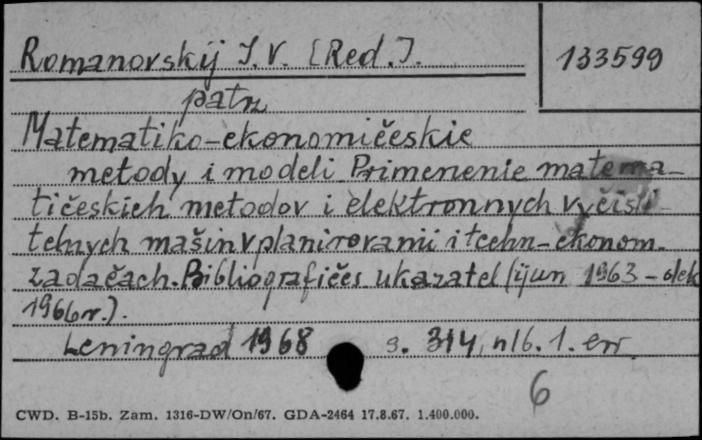 Romanovskij J. V. [Red.].
133599
patrz
Matematiko-ekonomičeskie
metody i modeli Primenenie matema-
tičeskich metodov i elektronnych vyčisli-
telnych mašin v planirovanii i techn-ekonom.
zadačach. Bibliografičes ukazatel (ijun 1963 - dek
1966 r.).
Leningrad 1968 s. 314, nlb. 1. err
6
CWD. B-15b. Zam. 1316-DW/On/67. GDA-2464 17.8.67. 1.400.000.